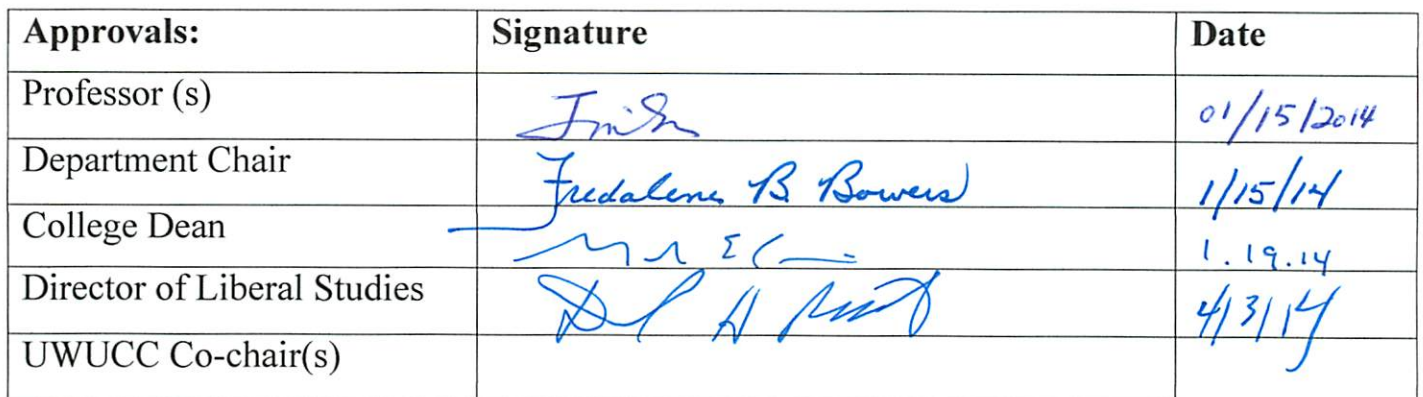 Approvals: Signature Date
Professor (s) 01/15/2014
Department Chair Fredalene B. Bowers 1/15/14
College Dean 1.19.14
Director of Liberal Studies 4/3/14
UWUCC Co-chair(s)